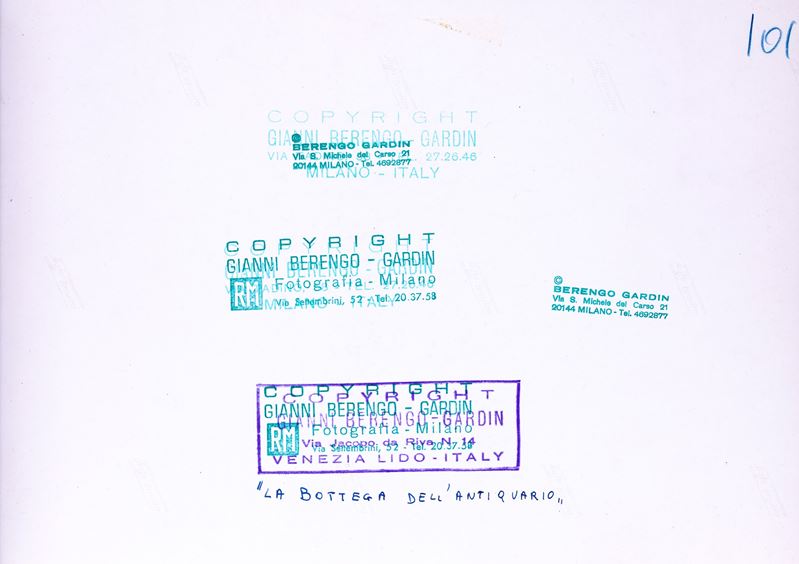 101
COPYRIGHT
GIANNI BERENGO - GARDIN
©
BERENGO GARDIN
Via S. Michele del Carso 21
27.26.46
20144 MILANO - Tel. 4692877
MILANO - ITALY
COPYRIGHT
GIANNI BERENGO - GARDIN
RM Fotografia - Milano
Via Settembrini, 52 - Tel. 20.37.58
©
BERENGO GARDIN
Via S. Michele del Carso 21
20144 MILANO - Tel. 4692877
COPYRIGHT
GIANNI BERENGO - GARDIN
RM Fotografia - Milano
Via Settembrini, 52 - Tel. 20.37.58
COPYRIGHT
GIANNI BERENGO - GARDIN
Via Jacopo da Riva N. 14
VENEZIA LIDO - ITALY
"LA BOTTEGA DELL'ANTIQUARIO"